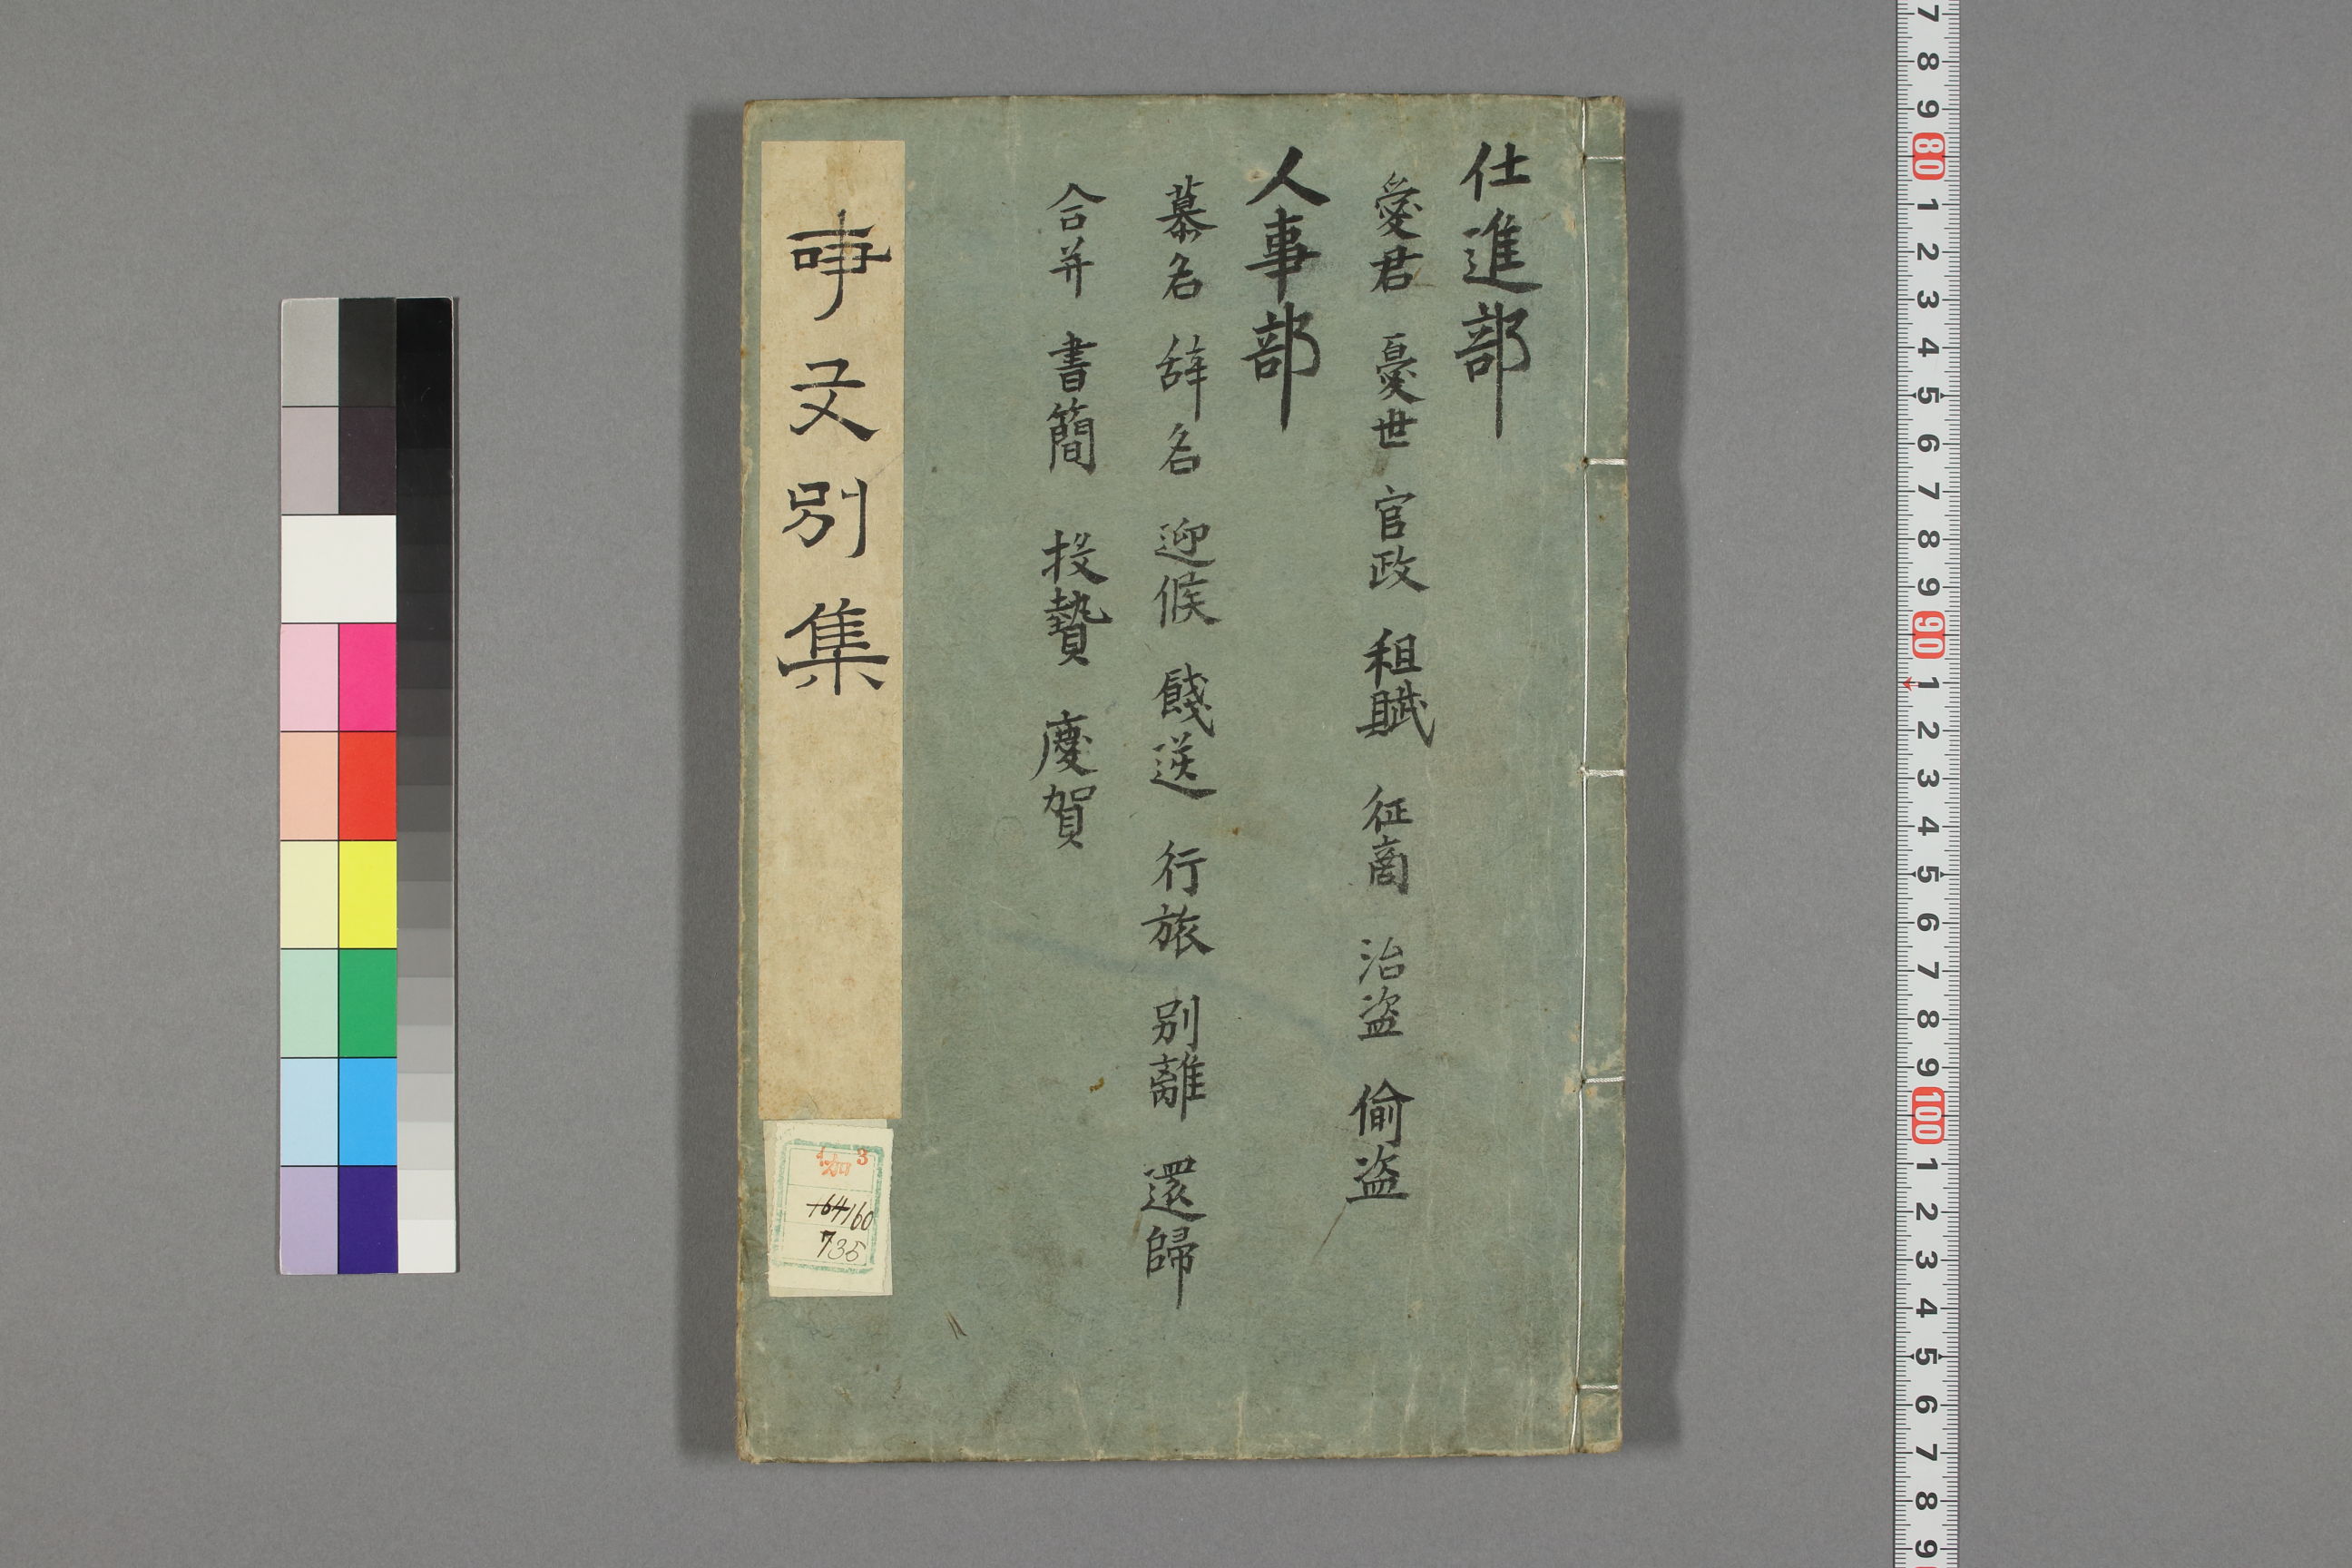 仕進部
愛君 憂世 官政 租賦 征商 治盗 偷盗
人事部
慕名 辞名 迎候 餞送 行旅 别離 還歸
合并 書簡 投贄 慶賀
事文别集
加 3
164 160
735
7 8 9 80 1 2 3 4 5 6 7 8 9 90 1 2 3 4 5 6 7 8 9 100 1 2 3 4 5 6 7 8 9